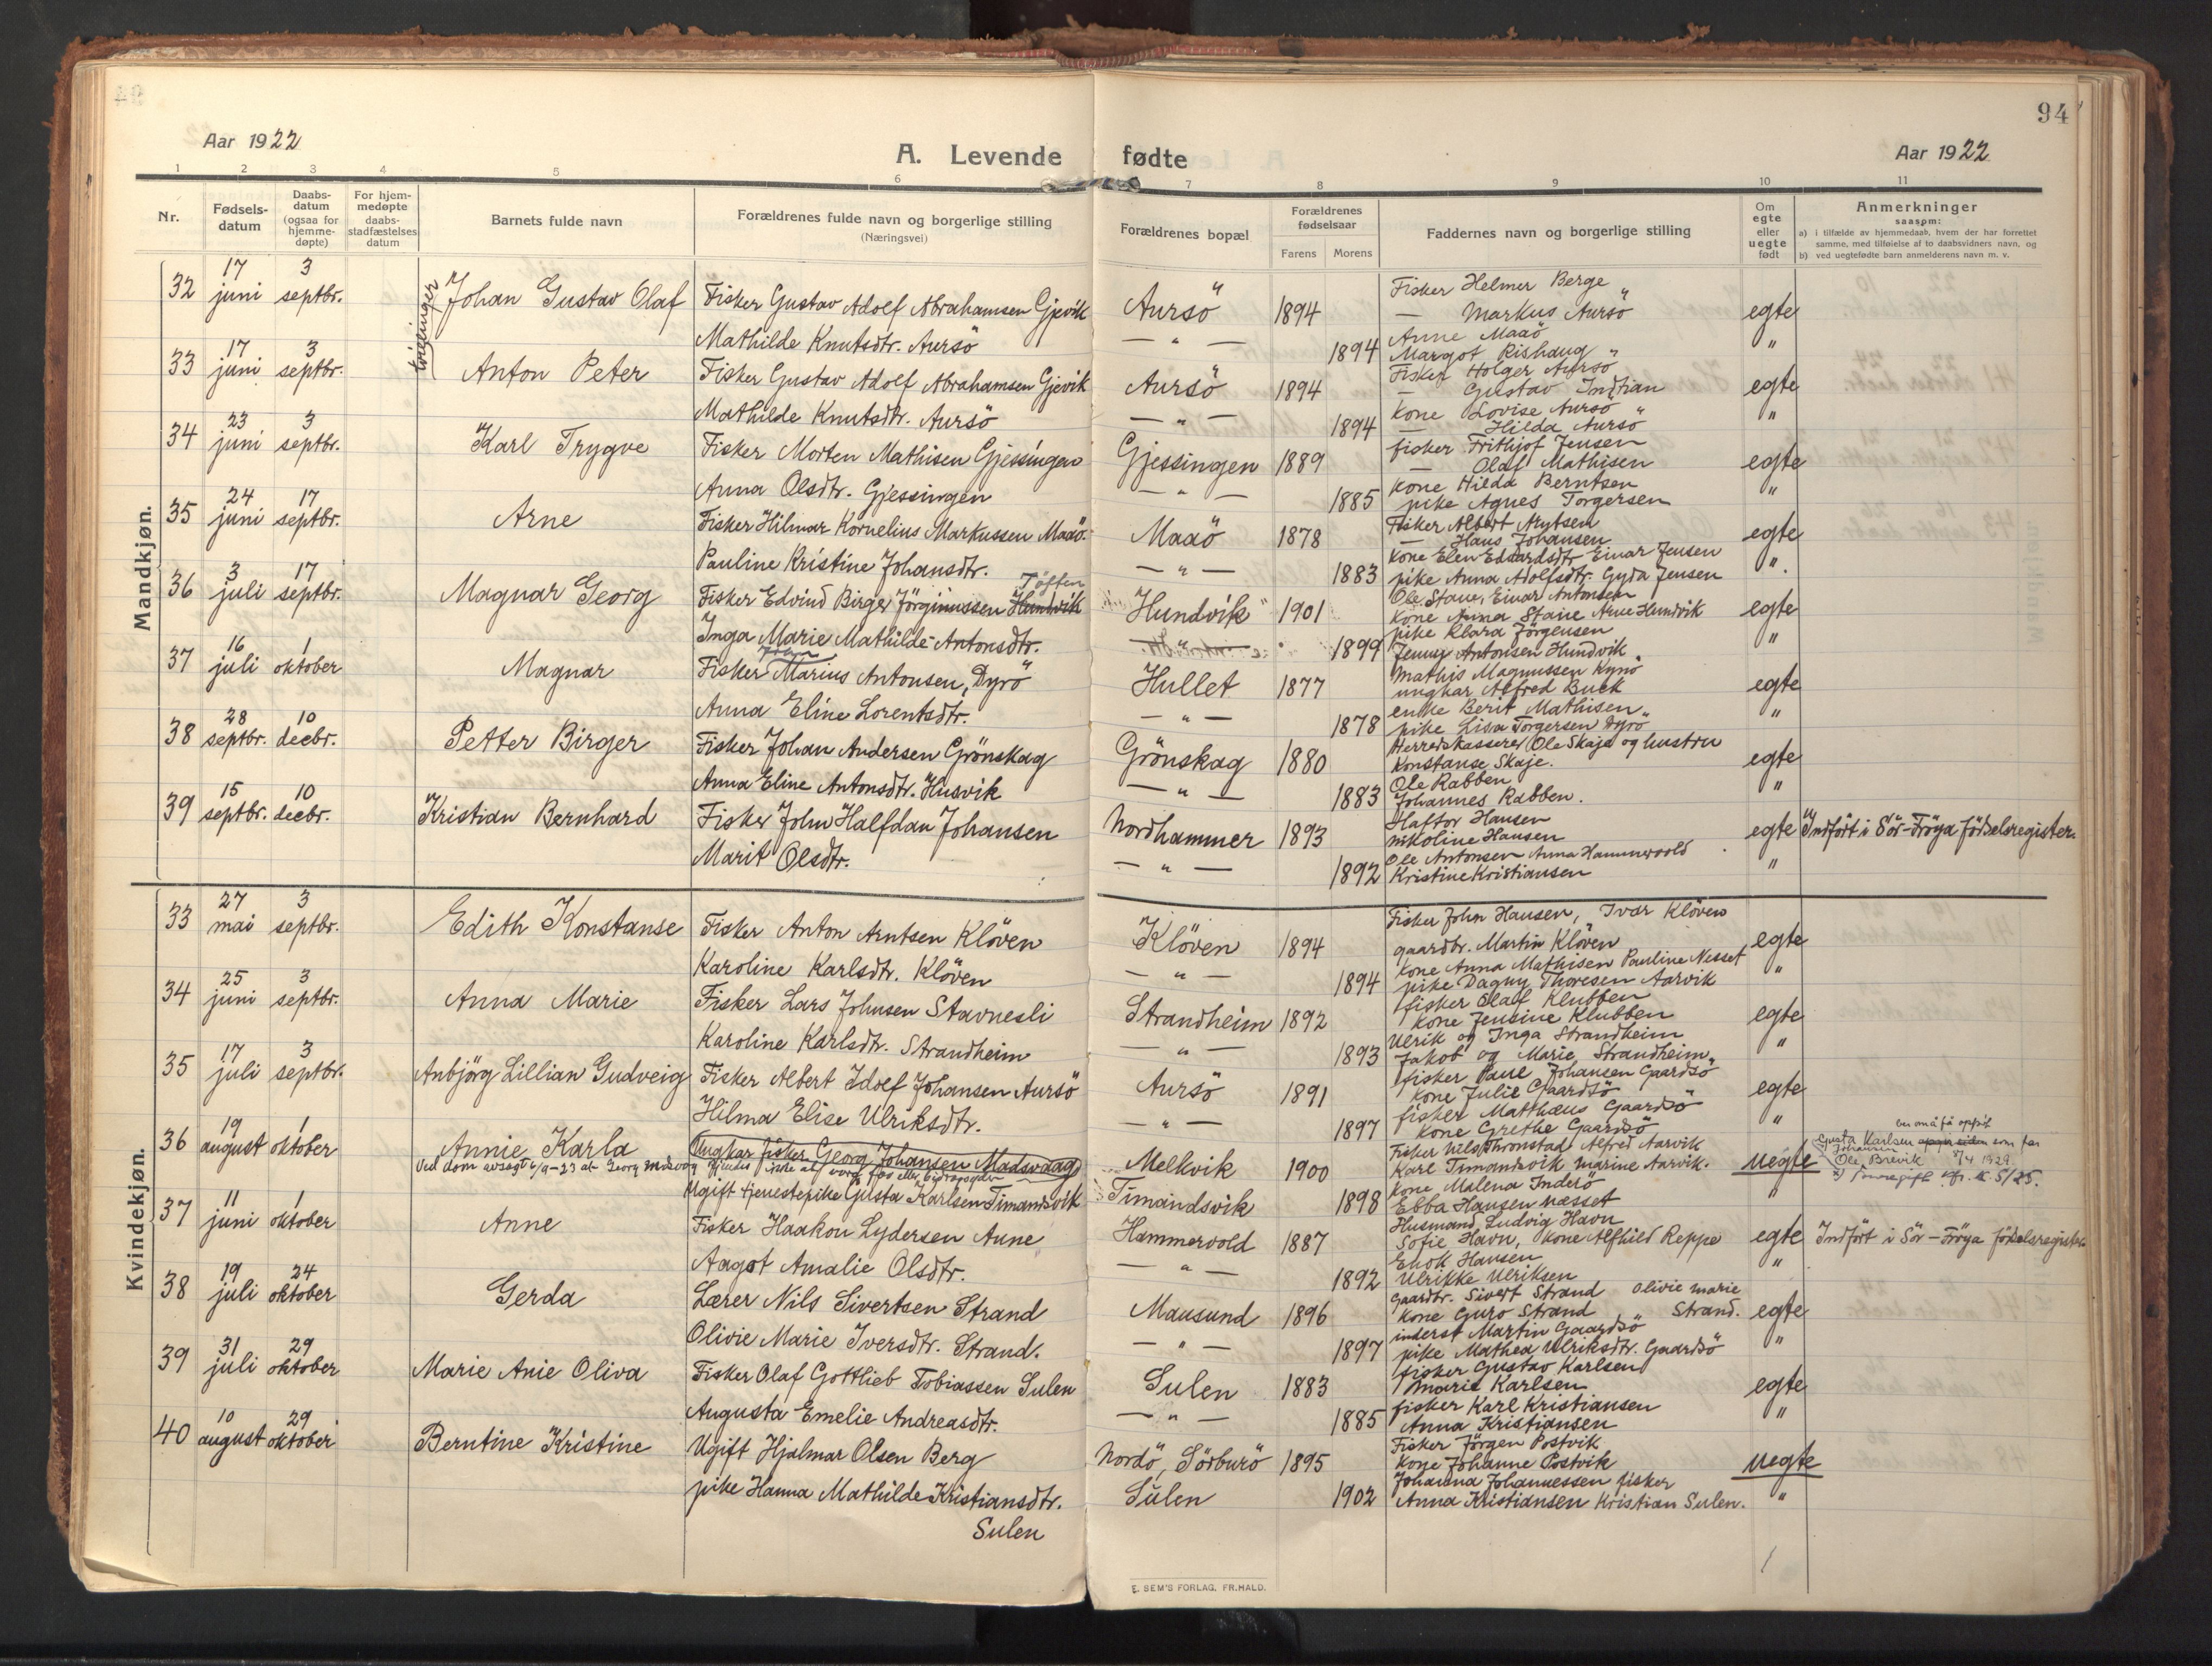 94
Aar 1922
A. Levende fødte
Aar 1922
1 2 3 4 5 6 7 8 9 10 11
Nr.
Fødsels-datum
Daabs-datum (ogsaa for hjemme-døpte)
For hjem-medøpte daabs-stadfæstelses datum
Barnets fulde navn
Forældrenes fulde navn og borgerlige stilling
(Næringsvei)
Forældrenes bopæl
Forældrenes fødselsaar
Farens Morens
Faddernes navn og borgerlige stilling
Om egte eller uegte født
Anmerkninger
saasom:
a) i tilfælde av hjemmedaab, hvem der har forrettet
samme, med tilføielse af to daabsvidners navn, og
b) ved uegtefødte barn anmelderens navn m. v.
Mandkjøn.
tvillinger
32 17 juni 3 septbr. Johan Gustav Olaf Fisker Gustav Adolf Abrahamsen Gjevik Aursö 1894 egte
Mathilde Knutsdtr. Aursö — " — 1894 "
Fisker Helmer Berge
— Markus Aursö
Anne Maaö
Margot Rishaug
33 17 juni 3 septbr. Anton Peter Fisker Gustav Adolf Abrahamsen Gjevik Aursö 1894 egte
Mathilde Knutsdtr. Aursö — " — 1894 "
Fisker Holger Aursö
— Gustav Indtian
Kone Lovise Aursö
— Hilda Aursö
34 23 juni 3 septbr. Karl Trygve Fisker Morten Mathisen Gjessingen Gjessingen 1889 egte
Anna Olsdtr. Gjessingen — " — 1885 "
fisker Frithjof Jensen
— Olaf Mathisen
Kone Hilda Berntsen
pike Agnes Torgersen
35 24 juni 17 septbr. Arne Fisker Hilmar Kornelius Markussen Maaö. Maaö 1878 egte
Pauline Kristine Johansdtr. — " — 1883 "
Fisker Albert Arntsen
— Hans Johansen
Kone Elen Edvardsdtr Einar Jensen
pike Anna Adolfsdtr. Gyda Jensen
36 3 juli 17 septbr. Magnar Georg Fisker Edvind Birger Jörginussen Hundvik Töften Hundvik 1901 egte
Inga Marie Mathilde Antonsdtr. 1899 "
Ole Stave, Einar Antonsen
Kone Anna Stave Arne Hundvik
pike Klara Jörgensen
Jenny Antonsen Hundvik
37 16 juli 1 oktober Magnar Fisker Johan Marius Antonsen, Dyrö Hullet 1877 egte
Anna Eline Lorentsdtr. — " — 1878 "
Mathis Magnussen Kynö
ungkar Alfred Buck
enke Berit Mathisen
pike Lisa Torgersen Dyrö
38 28 septbr. 10 decbr. Petter Birger Fisker Johan Andersen Grönskag Grönskag 1880 egte
Anna Eline Antonsdtr. Husvik — " — 1883 "
Herredskasserer Ole Skaje og hustru
Konstanse Skaje.
Ole Rabben
Johannes Rabben.
39 15 septbr. 10 decbr. Kristian Bernhard Fisker John Halfdan Johansen Nordhammer 1893 egte Indfört i Sör-Fröya födselsregister.
Marit Olsdtr. — " — 1892 "
Haftor Hansen
Nikoline Hansen
Ole Antonsen Anna Hammervold
Kristine Kristiansen
Kvindekjøn.
33 27 mai 3 septbr. Edith Konstanse Fisker Anton Arntsen Klöven Klöven 1894 egte
Karoline Karlsdtr. Klöven — " — 1894 "
Fisker John Hansen, Ivar Klöven
gaardbr. Martin Klöven
Kone Anna Mathisen Pauline Nesset
pike Dagny Thoresen Aarvik
34 25 juni 3 septbr. Anna Marie Fisker Lars Johnsen Stavnesli Strandheim 1892 egte
Karoline Karlsdtr. Strandheim — " — 1893 "
fisker Olaf Klubben
Kone Jensine Klubben
Ulrik og Inga Strandheim
Jakob og Marie Strandheim
35 17 juli 3 septbr. Anbjörg Lillian Gudveig Fisker Albert Idolf Johansen Aursö Aursö 1891 egte
Hilma Elise Ulriksdtr. — " — 1897 "
fisker Paul Johansen Gaardsö
Kone Julie Gaardsö
fisker Matthæus Gaardsö
Kone Grethe Gaardsö
36 19 august 1 oktober Annie Karla Ungkar fisker Georg Johansen Madsvaag Melkvik 1900 uegte
Ved dom avsagt
Ugift tjenestepike Gusta Karlsen Timandsvik Timandsvik 1898 "
Fisker Nils Thronstad Alfred Aarvik
Karl Timandsvik Marine Aarvik.
Kone Malena Inderö
Ebba Hansen Næsset
Gusta Karlsen som far
Johansen
Ole Brevik
37 11 juni 1 oktober Anne Fisker Haakon Lydersen Aune Hammervold 1887 egte Indfört i Sör-Fröya födselsregister
Aagot Amalie Olsdtr. — " — 1892 "
Husmand Ludvig Havn
Sofie Havn, Kone Alfhild Reppe
Enok Hansen
Ulrikke Ulriksen
38 19 juli 24 oktober Gerda Lærer Nils Sivertsen Strand Mausund 1896 egte
Olivie Marie Iversdtr. Strand. — " — 1897 "
Gaardbr. Sivert Strand Olivie Marie
Kone Guro Strand Strand.
inderst Martin Gaardsö
pike Mathea Ulriksdtr. Gaardsö
39 31 juli 29 oktober Marie Anie Oliva Fisker Olaf Gottlieb Tobiassen Sulen Sulen 1883 egte
Augusta Emelie Andreasdtr. — " — 1885 "
fisker Gustav Karlsen
Marie Karlsen
fisker Karl Kristiansen
Anna Kristiansen
40 10 august 29 oktober Berntine Kristine Ugift Hjalmar Olsen Berg Nordö, Sörburö 1895 uegte
pike Hanna Mathilde Kristiansdtr. Sulen 1902 "
Sulen
Fisker Jörgen Postvik
Kone Johanne Postvik
Johanna Johannessen fisker
Anna Kristiansen Kristian Sulen.
E. SEM'S FORLAG, FR.HALD.